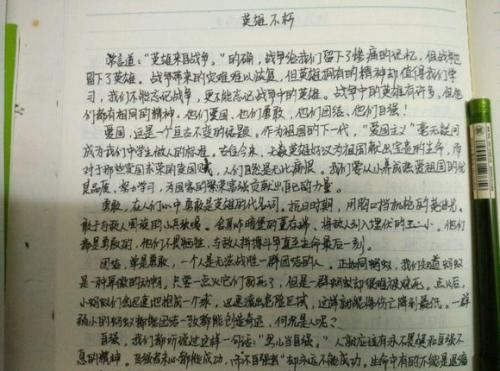 英雄不朽
常言道："英雄来自战争。"的确，战争给我们留下了惨痛的记忆，但战争也
留下了英雄。战争带来的灾难难以恢复，但英雄拥有的精神却值得我们学
习，我们不能忘记战争，更不能忘记战争中的英雄。战争中的英雄有许多，但他
们都有相同的精神，他们爱国，他们勇敢，他们团结，他们自强！
爱国，这是一个亘古不变的话题，作为祖国的下一代，"爱国主义"毫无疑问
成为我们中学生做人的标准。古往今来，无数英雄好汉为祖国献出宝贵的生命，而
对于那些卖国求荣的卖国贼，人们自然是无比痛恨。我们要从小养成热爱祖国的优
良品质，努力学习，为国家的繁荣富强贡献出自己的力量。
勇敢，在人们心中勇敢是英雄的代名词。抗日时期，用胸口挡机枪的黄继光，
敢于与敌人周旋的小兵张嘎，舍身炸碉堡的董存瑞，将敌人引入埋伏的王二小，他们
都是勇敢的，他们不畏牺牲，与敌人拼搏斗争直至生命最后一刻。
团结，单是勇敢，一个人是无法战胜一群团结的人。正如同蚂蚁，我们知道蚂蚁
是一种卑微的动物，只要一点火它们就死了，但是一群蚂蚁却很难被烧死。点火后，
小蚂蚁们会迅速地抱成一个球，迅速滚出危险区域，这样就能将伤亡降到最低。一群
弱小的蚂蚁都能团结一致都能创造奇迹，何况是人呢？
自强，我们都听说过这样一句话："男儿当自强。"人就应该有永不畏惧和自强不
息的精神。自强者未必都能成功，而不自强者却永远不能成功。生命中有的不能是退缩